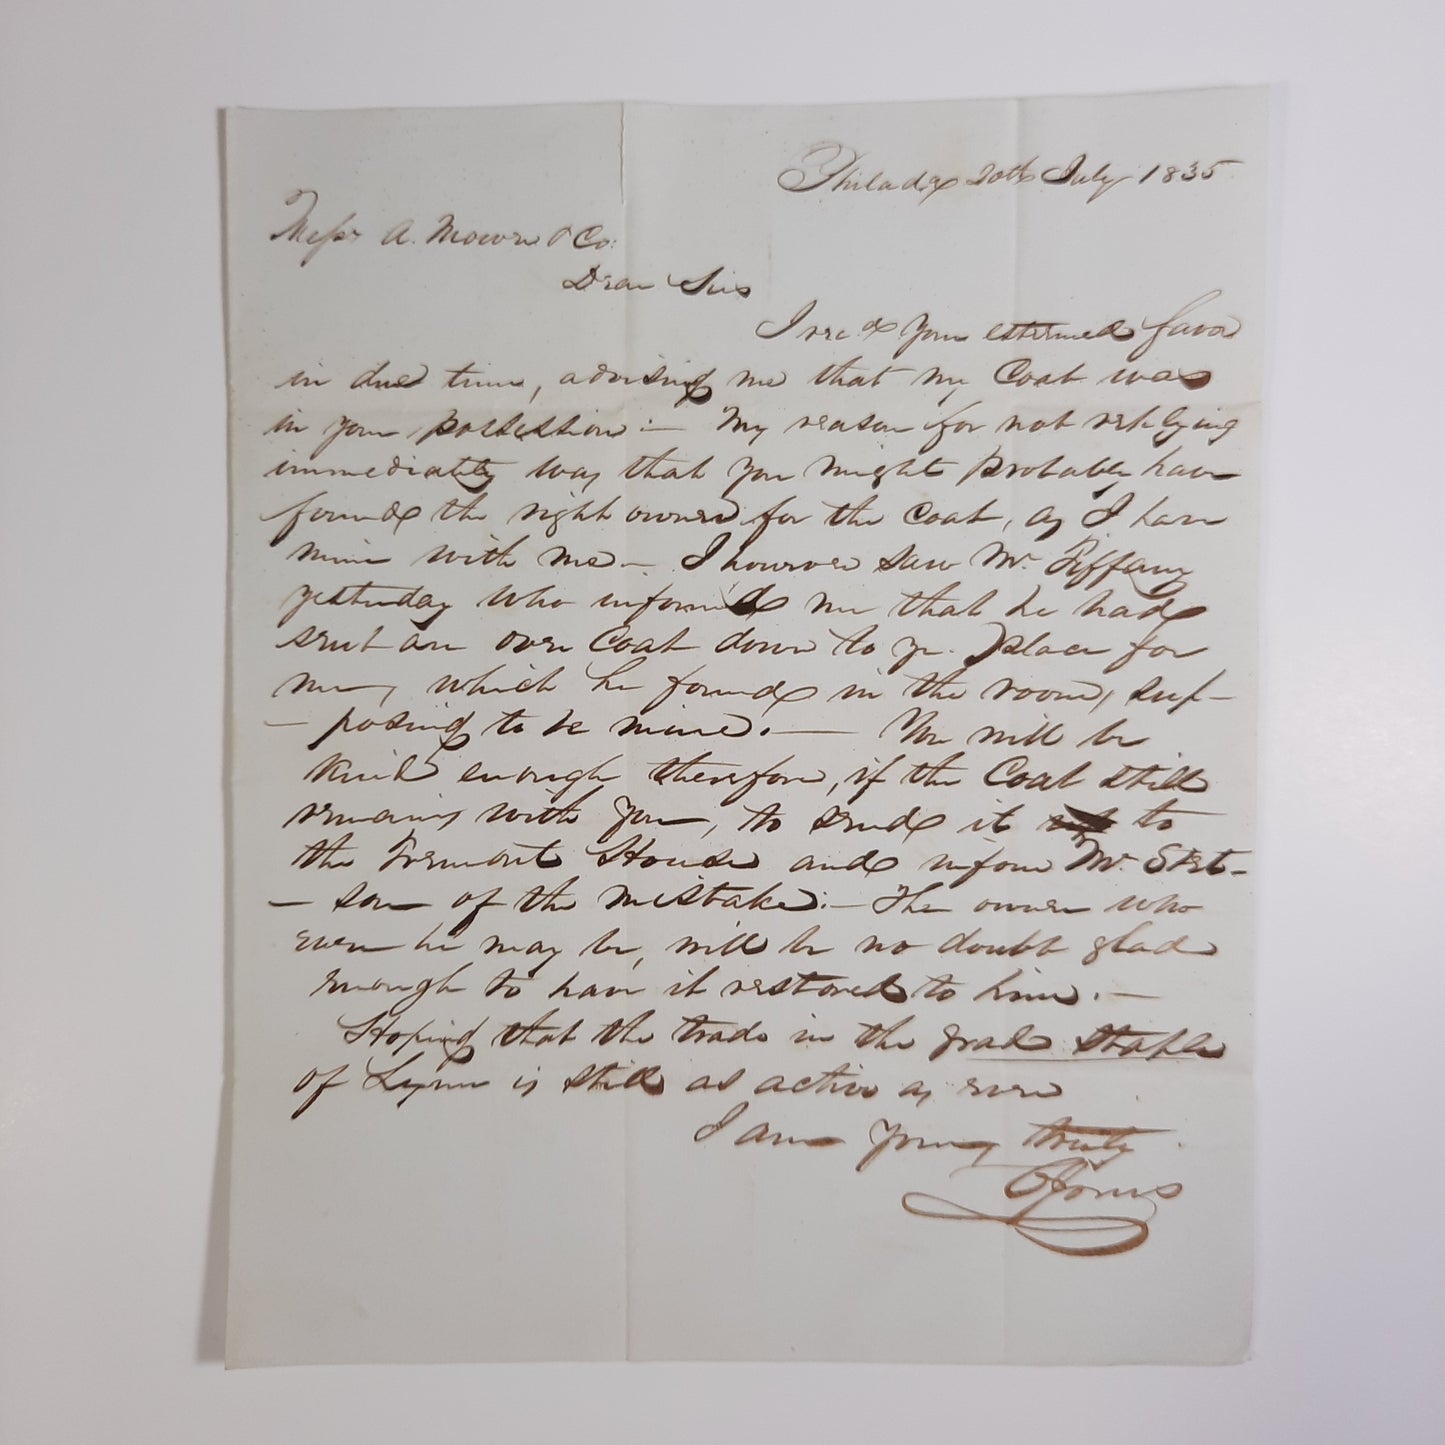 Philada 20th July 1835
Messrs A. & Co:
Dear Sirs
I recd your esteemed favor
in due time, advising me that my Coat was
in your possession:— My reason for not replying
immediately was that you might probably have
found the right owner for the Coat, as I have
mine with me— I however saw Mr. Tiffany
yesterday who informed me that he had
sent an over Coat down to yr. place for
me, which he found in the room, sup-
-posing to be mine.— You will be
kind enough therefore, if the Coat still
remains with you, to send it to
the Tremont House and inform Mr. Stet-
-son of the mistake:— The owner who
ever he may be, will be no doubt glad
enough to have it restored to him.—
Hoping that the trade in the grad staple
of Lynn is still as active as ever
I am Yours truly